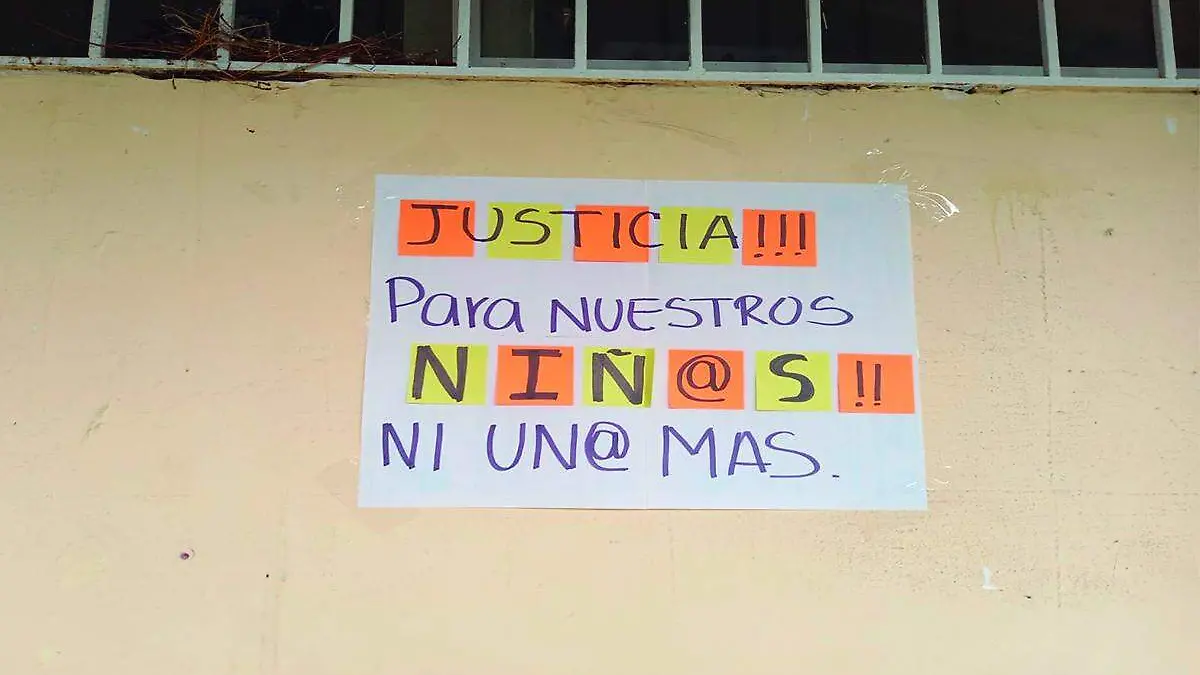 JUSTICIA!!!
Para NUESTROS
NIÑ@S!!
NI UN@ MAS.